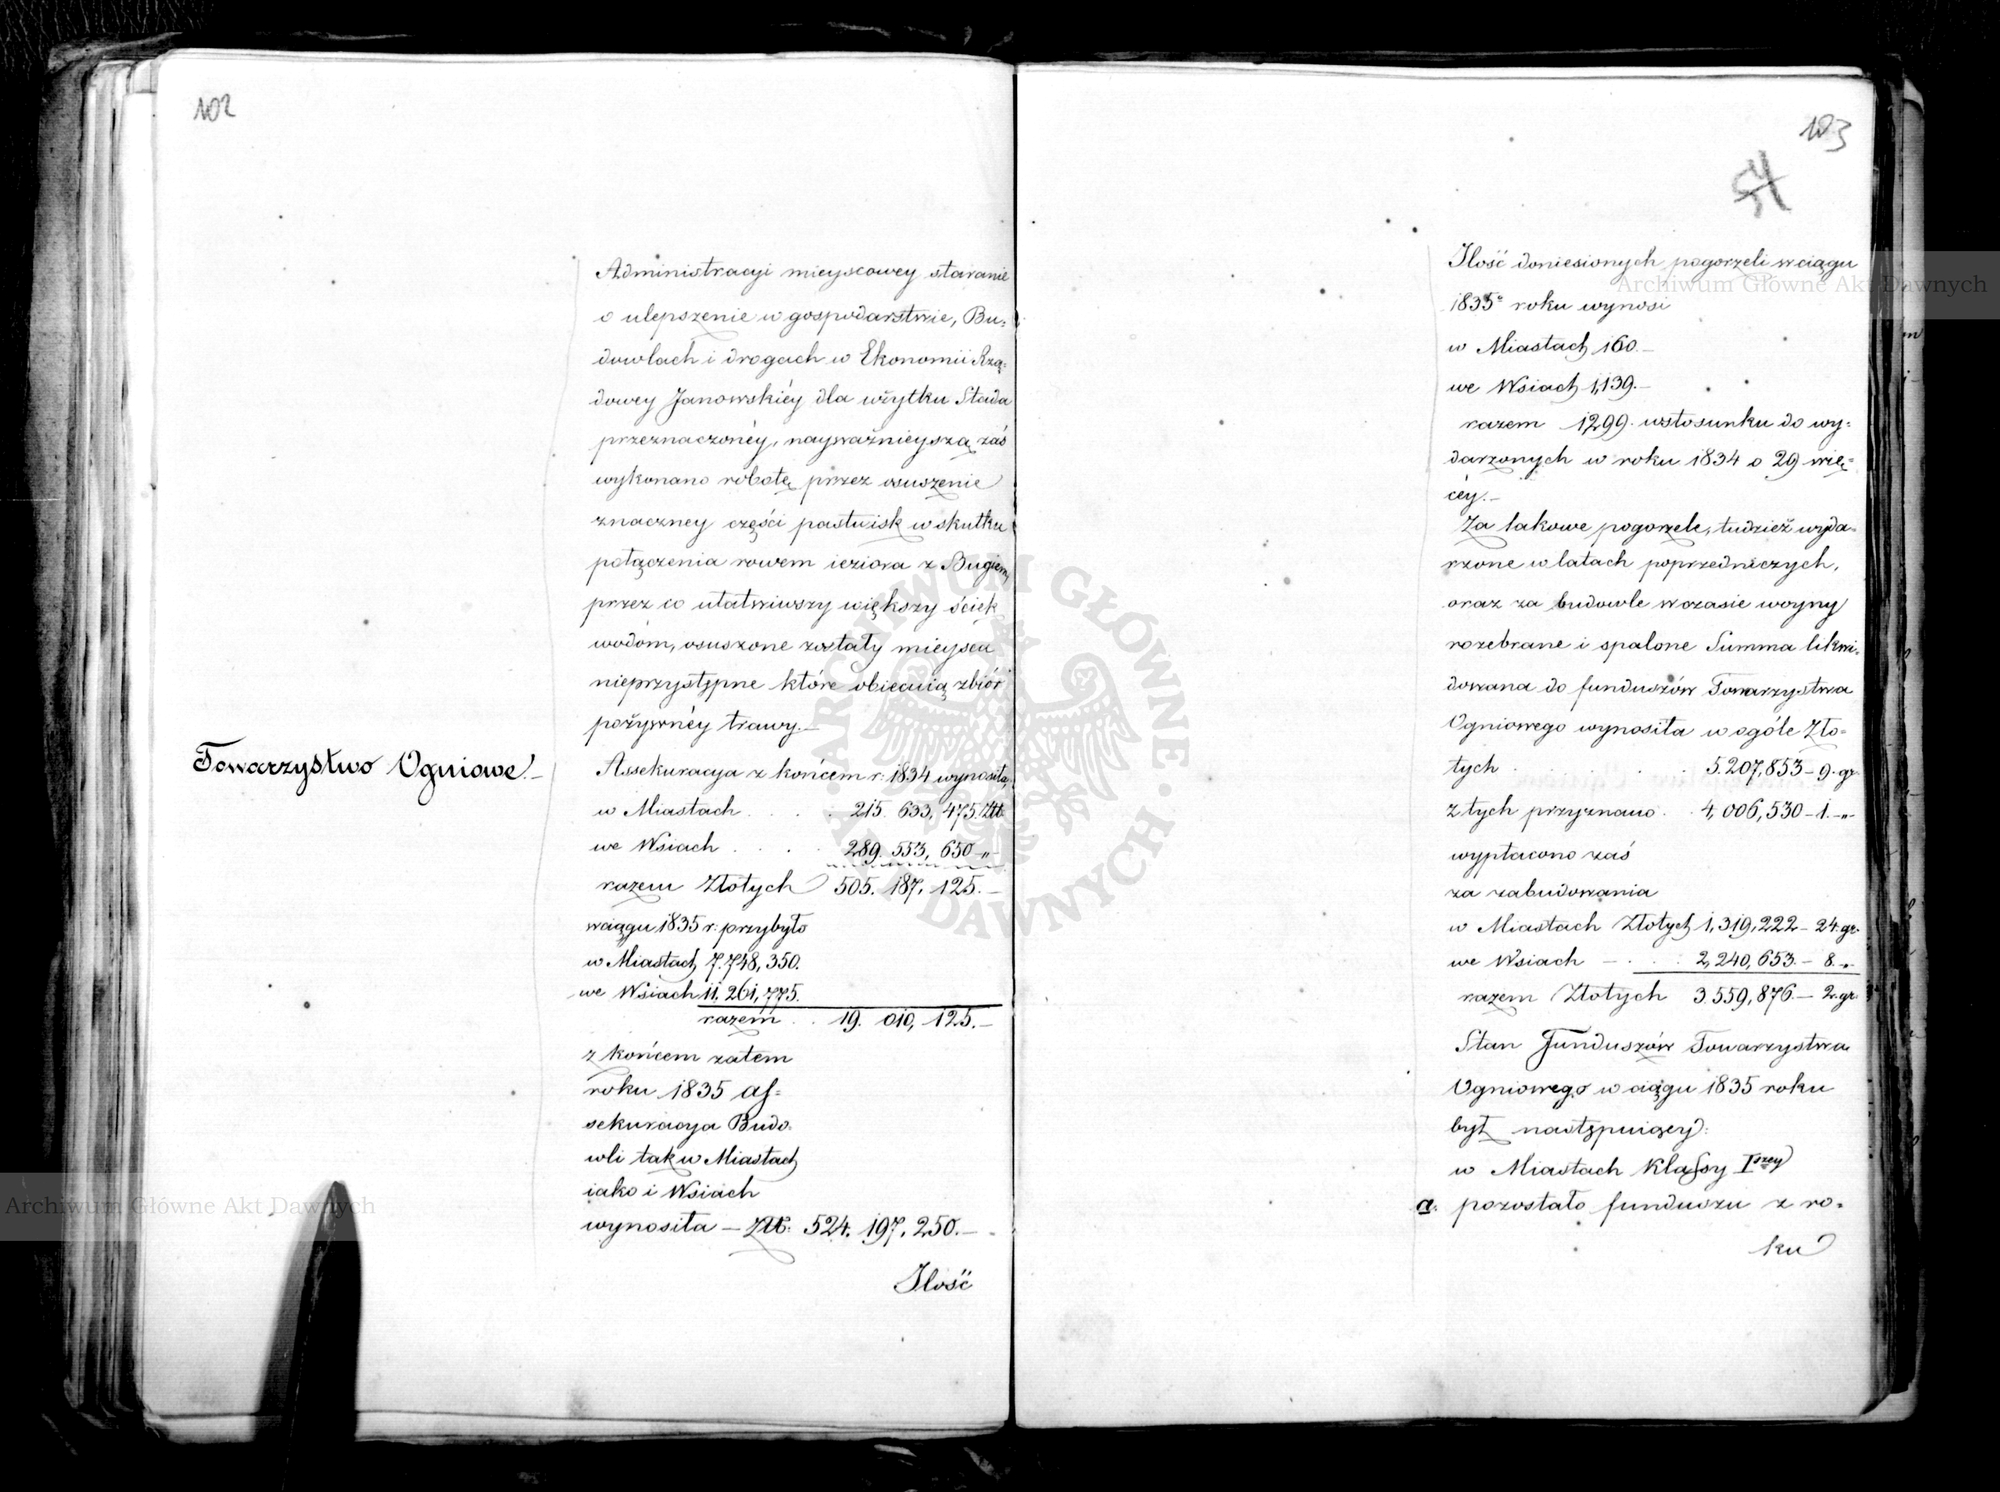 102
Administracyi mieyscowey staranie
o ulepszenie w gospodarstwie, Bu=
dowlach i drogach w Ekonomii Rzą=
dowey Janowskiéy dla użytku Stada
przeznaczonéy, nayważnieyszą zaś
wykonano robotę przez osuszenie
znaczney części pastwisk w skutku
połączenia rowem ieziora z Bugiem,
przez co ułatwiwszy większy ściek
wodóm, osuszone zostały mieysca
nieprzystępne które obiecuią zbiór
pożywnéy trawy.—
Towarzystwo Ogniowe.—
Assekuracya z końcem r. 1834 wynosiła,
w Miastach . . . . 215. 633, 475. Złt
we Wsiach . . . . 289. 553, 650 -„-
razem Złotych 505. 187, 125.—
w ciągu 1835 r: przybyło
w Miastach 7.748, 350.
we Wsiach 11, 261, 775.
razem . . 19. 010, 125.—
z końcem zatem
roku 1835 as=
sekuracya Budo=
wli tak w Miastach
iako i Wsiach
wynosiła — Złt: 524. 197, 250.—
Ilość
103
54
Ilość doniesionych pogorzeli w ciągu
1835º roku wynosi
w Miastach 160.—
we Wsiach 1,139.—
razem 1,299. w stosunku do wy=
darzonych w roku 1834 o 29 wię=
céy.—
Za takowe pogorzele, tudzież wyda=
rzone w latach poprzedniczych,
oraz za budowle w czasie woyny
rozebrane i spalone Summa likwi=
dowana do funduszów Towarzystwa
Ogniowego wynosiła w ogóle Zło=
tych . . . . . 5.207,853 — 9. gr.
z tych przyznano . . 4,006,530 — 1. -„-
wypłacono zaś
za zabudowania
w Miastach Złotych 1,319,222 — 24. gr.
we Wsiach — . . . 2,240,653. — 8. -„-
razem Złotych 3.559,876. — 2. gr.
Stan Funduszów Towarzystwa
Ogniowego w ciągu 1835 roku
był następuiący:
w Miastach Klassy Iszey
a. pozostało funduszu z ro=
ku
Archiwum Główne Akt Dawnych
Archiwum Główne Akt Dawnych
ARCHIWUM GŁÓWNE · AKT DAWNYCH ·